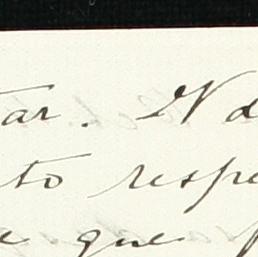 ar. N d
to respe
e que f